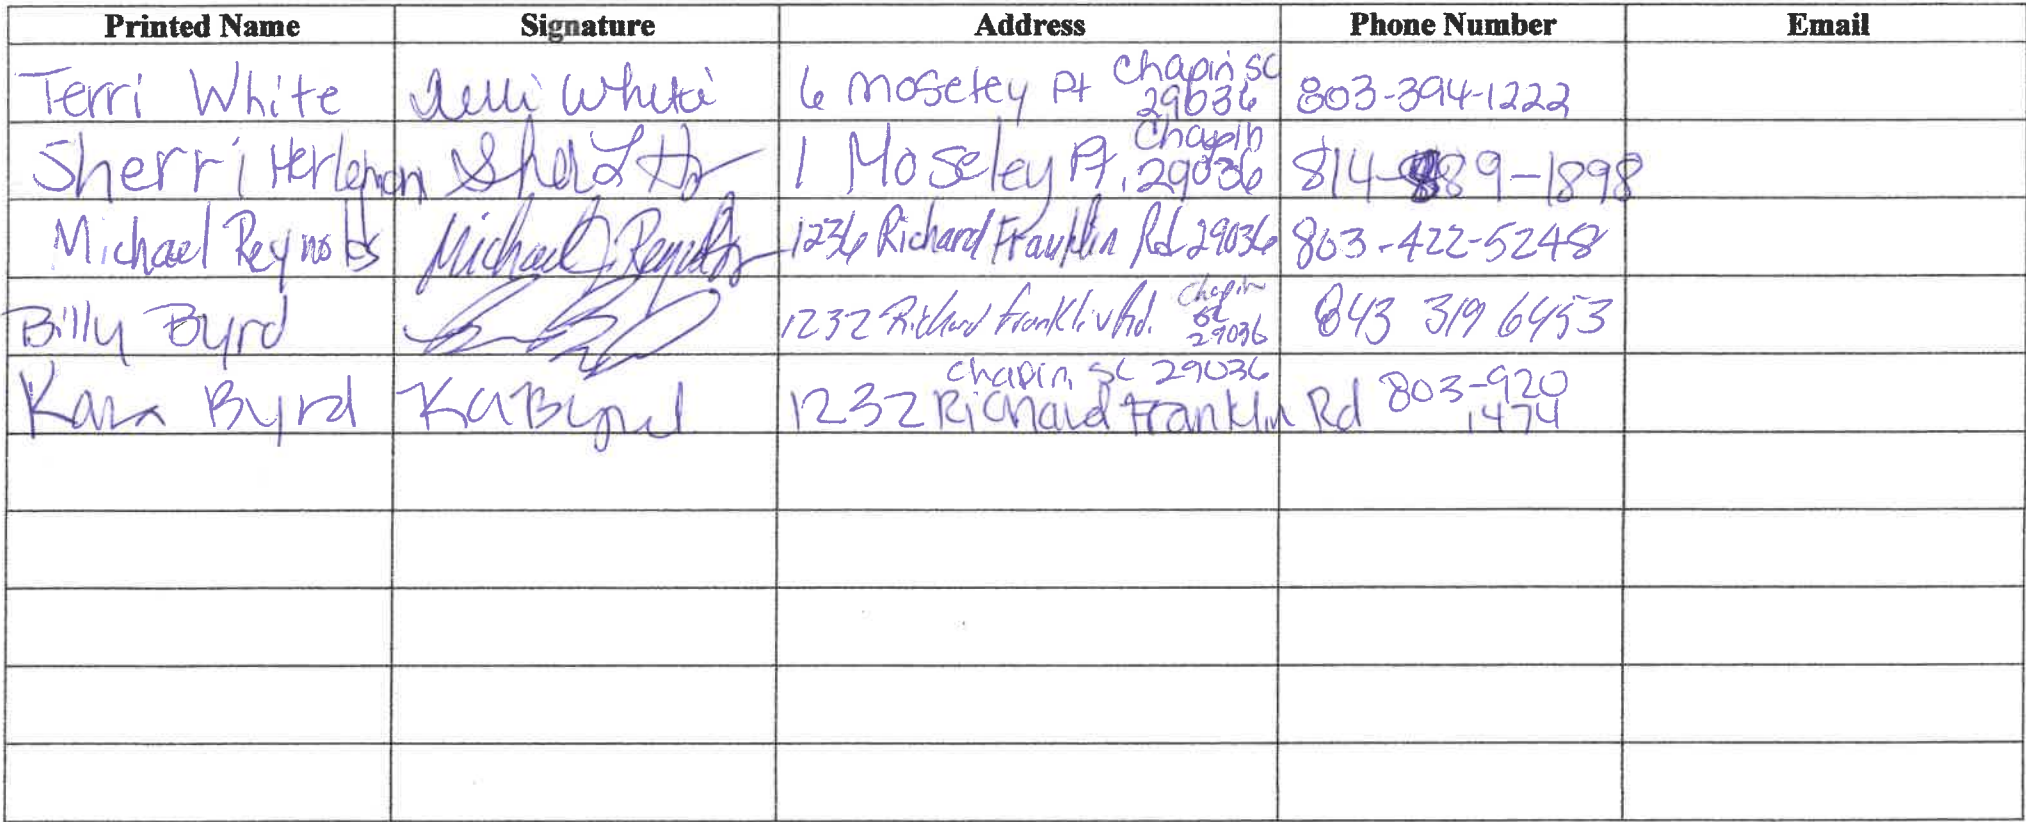 Printed Name Signature Address Phone Number Email
Terri White Terri White 6 Moseley Pt Chapin SC 29036 803-394-1222
Sherri Herleman 1 Moseley Pt. Chapin 29036 814-889-1898
Michael Reynolds Michael J. Reynolds 1236 Richard Franklin Rd 29036 803-422-5248
Billy Byrd 1232 Richard Franklin Rd. Chapin SC 29036 843 319 6453
Kara Byrd Ka Byrd 1232 Richard Franklin Rd Chapin, SC 29036 803-920 1474